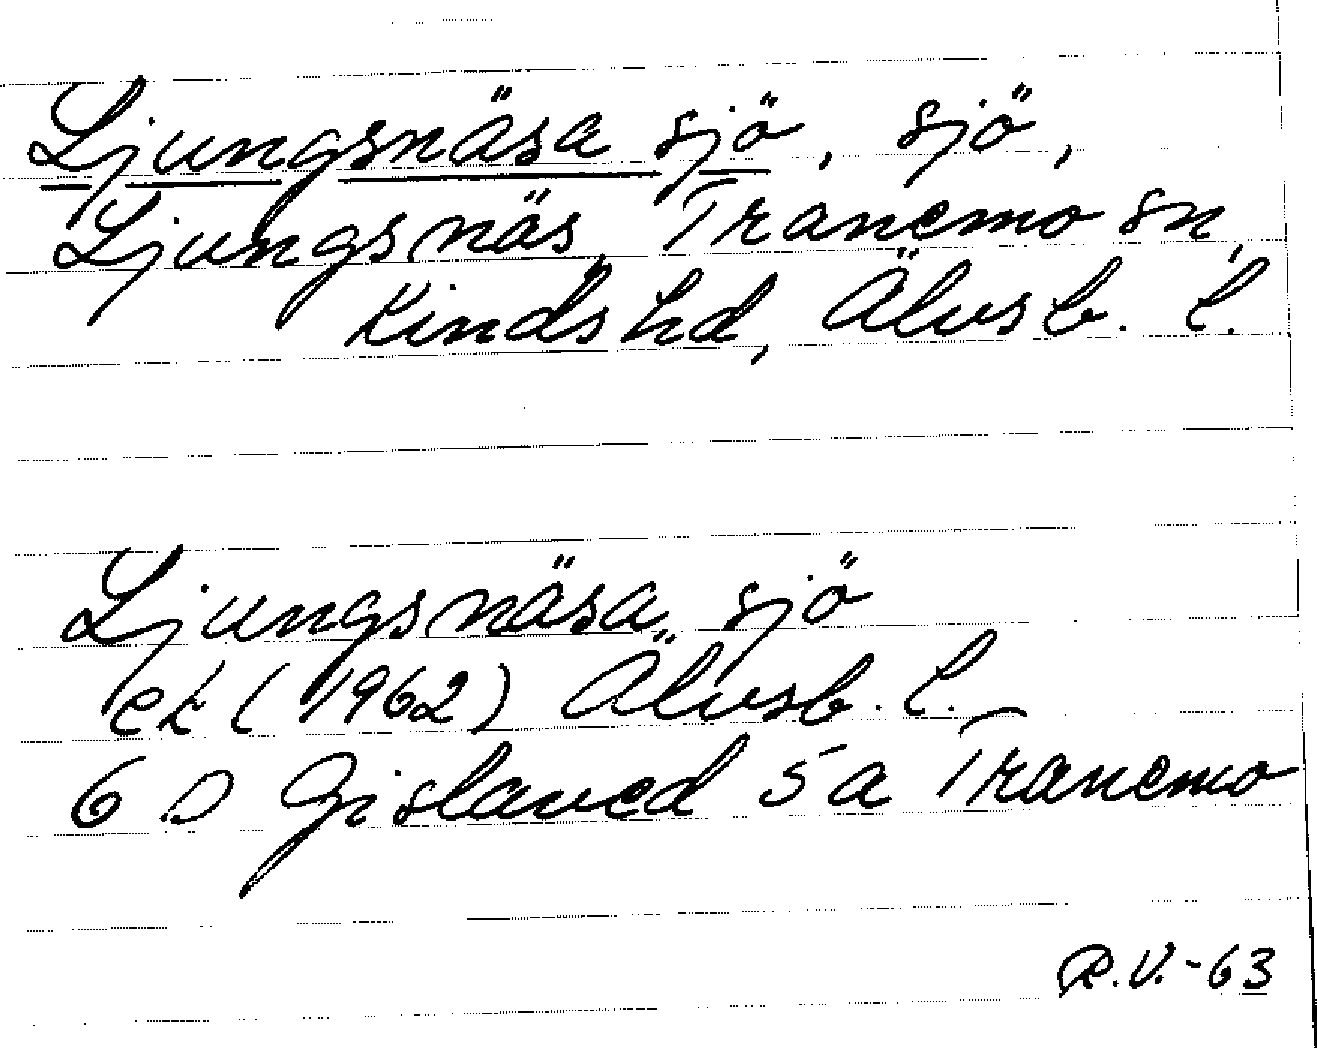 Ljungsnäsa sjö, sjö,
Ljungsnäs, Tranemo sn,
Kinds hd, Älvsb. l.
Ljungsnäsa sjö
ek (1962) Älvsb. l.
6 D Gislaved 5a Tranemo
R.V.-63